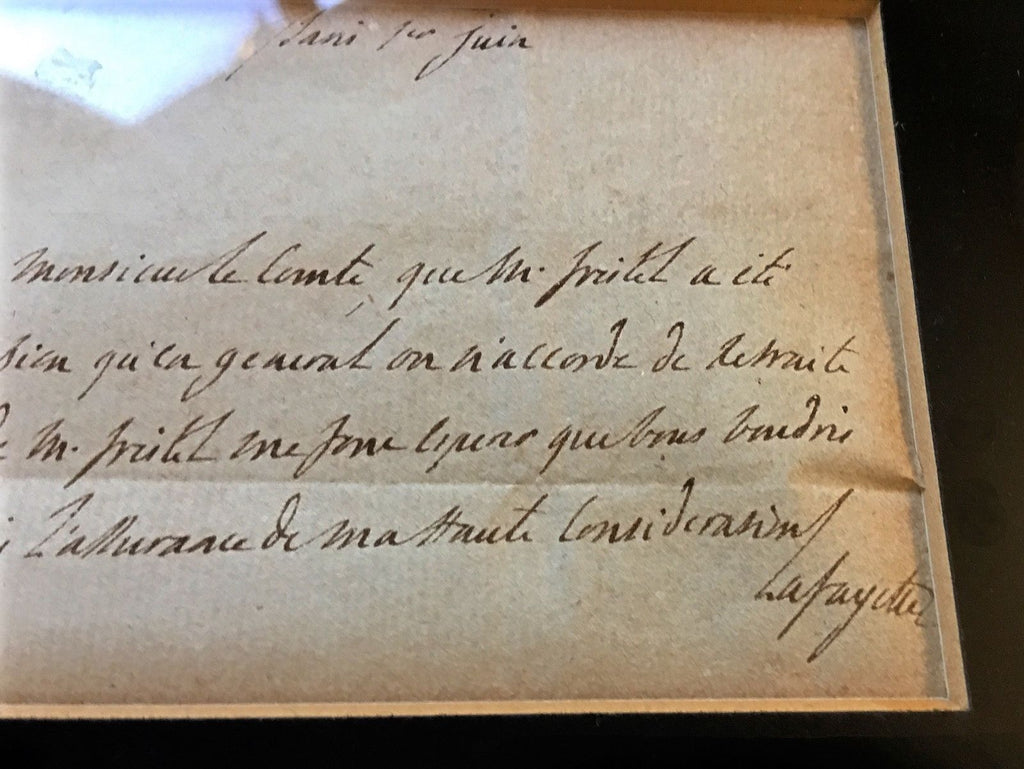 Paris 1er juin
Monsieur le Comte, que M. freitel a été
bien qu'en general on n'accorde de retraite
de M. freitel me font esperer que vous voudrés
l'assurance de ma Haute Consideration
Lafayette